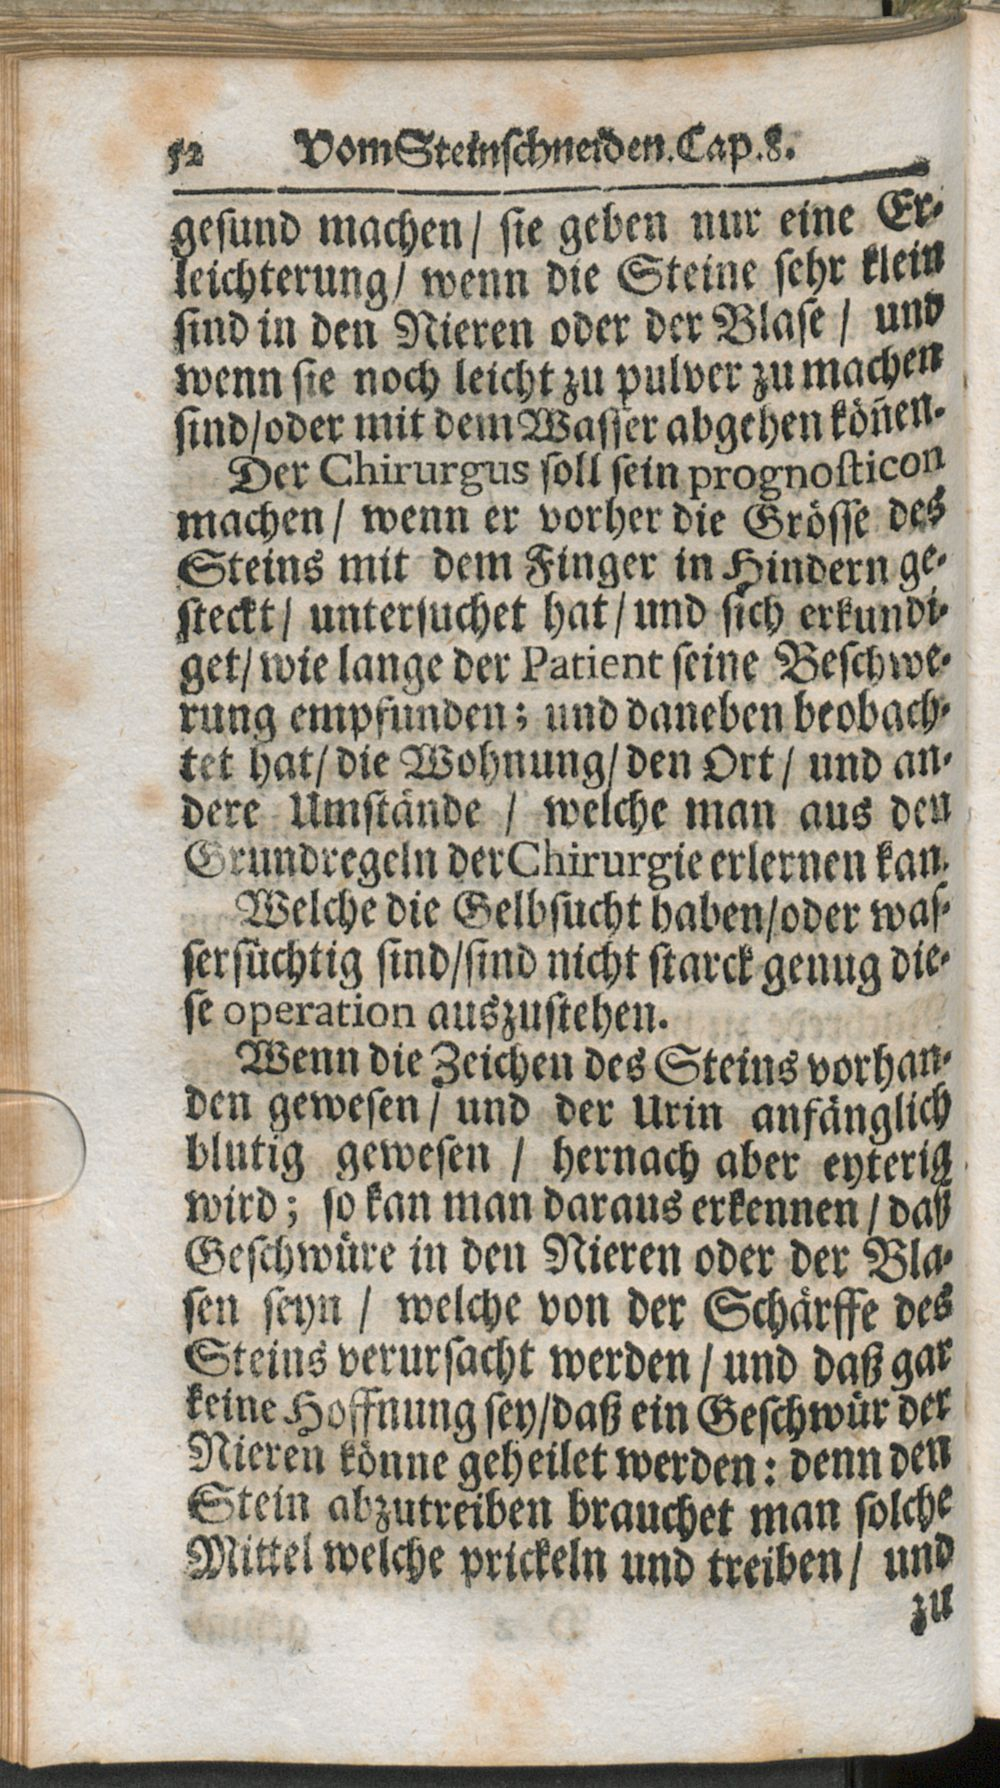 52 Vom Steinschneiden. Cap. 8.
gesund machen / sie geben nur eine Er-
leichterung / wenn die Steine sehr klein
sind in den Nieren oder der Blase / und
wenn sie noch leicht zu pulver zu machen
sind / oder mit dem Wasser abgehen köñen.
Der Chirurgus soll sein prognosticon
machen / wenn er vorher die Grösse des
Steins mit dem Finger in Hindern ge-
steckt / untersuchet hat / und sich erkundi-
get / wie lange der Patient seine Beschwe-
rung empfunden; und daneben beobach-
tet hat / die Wohnung / den Ort / und an-
dere Umstände / welche man aus den
Grundregeln der Chirurgie erlernen kan.
Welche die Gelbsucht haben / oder was-
sersüchtig sind / sind nicht starck genug die-
se operation auszustehen.
Wenn die Zeichen des Steins vorhan-
den gewesen / und der Urin anfänglich
blutig gewesen / hernach aber eyterig
wird; so kan man daraus erkennen / daß
Geschwüre in den Nieren oder der Bla-
sen seyn / welche von der Schärffe des
Steins verursacht werden / und daß gar
keine Hoffnung sey / daß ein Geschwür der
Nieren könne geheilet werden: denn den
Stein abzutreiben brauchet man solche
Mittel welche prickeln und treiben / und
zu